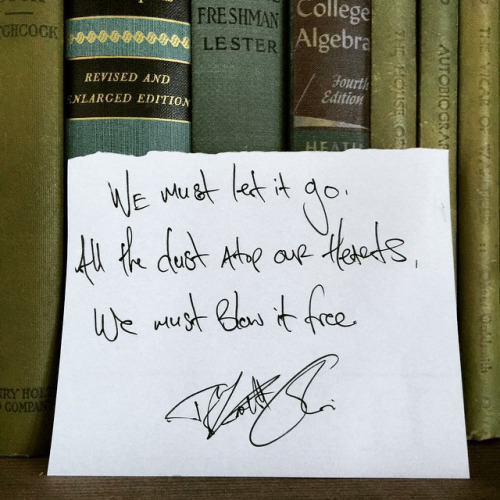 TCHCOCK
REVISED AND
ENLARGED EDITION
FRESHMAN
LESTER
College
Algebra
Fourth
Edition
HEATH
AUTOBIOGRA
THE VICAR OF WA
WE must let it go.
All the dust Atop our Hearts,
We must Blow it free
RY HOL
COMPAN